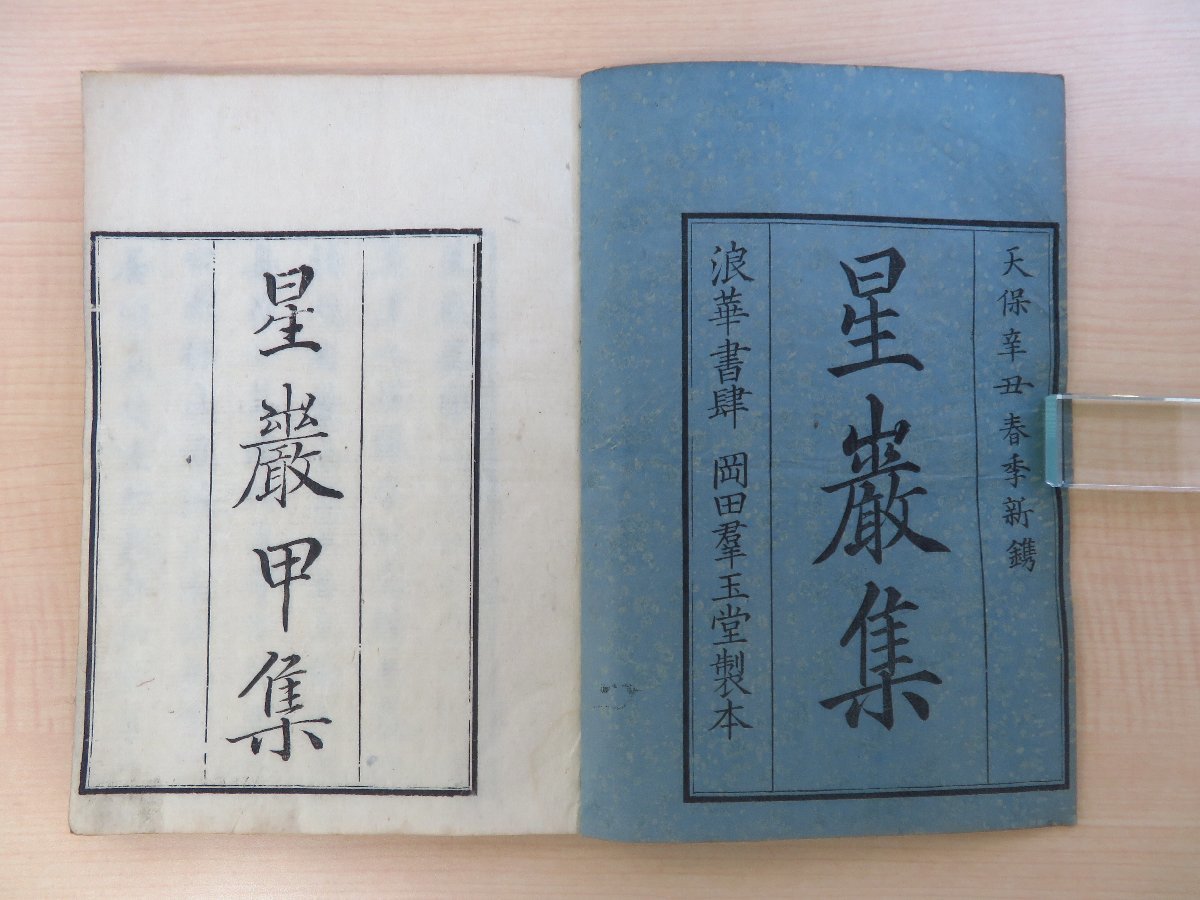 天保辛丑春季新鐫
星巖集
浪華書肆 岡田羣玉堂製本
星巖甲集